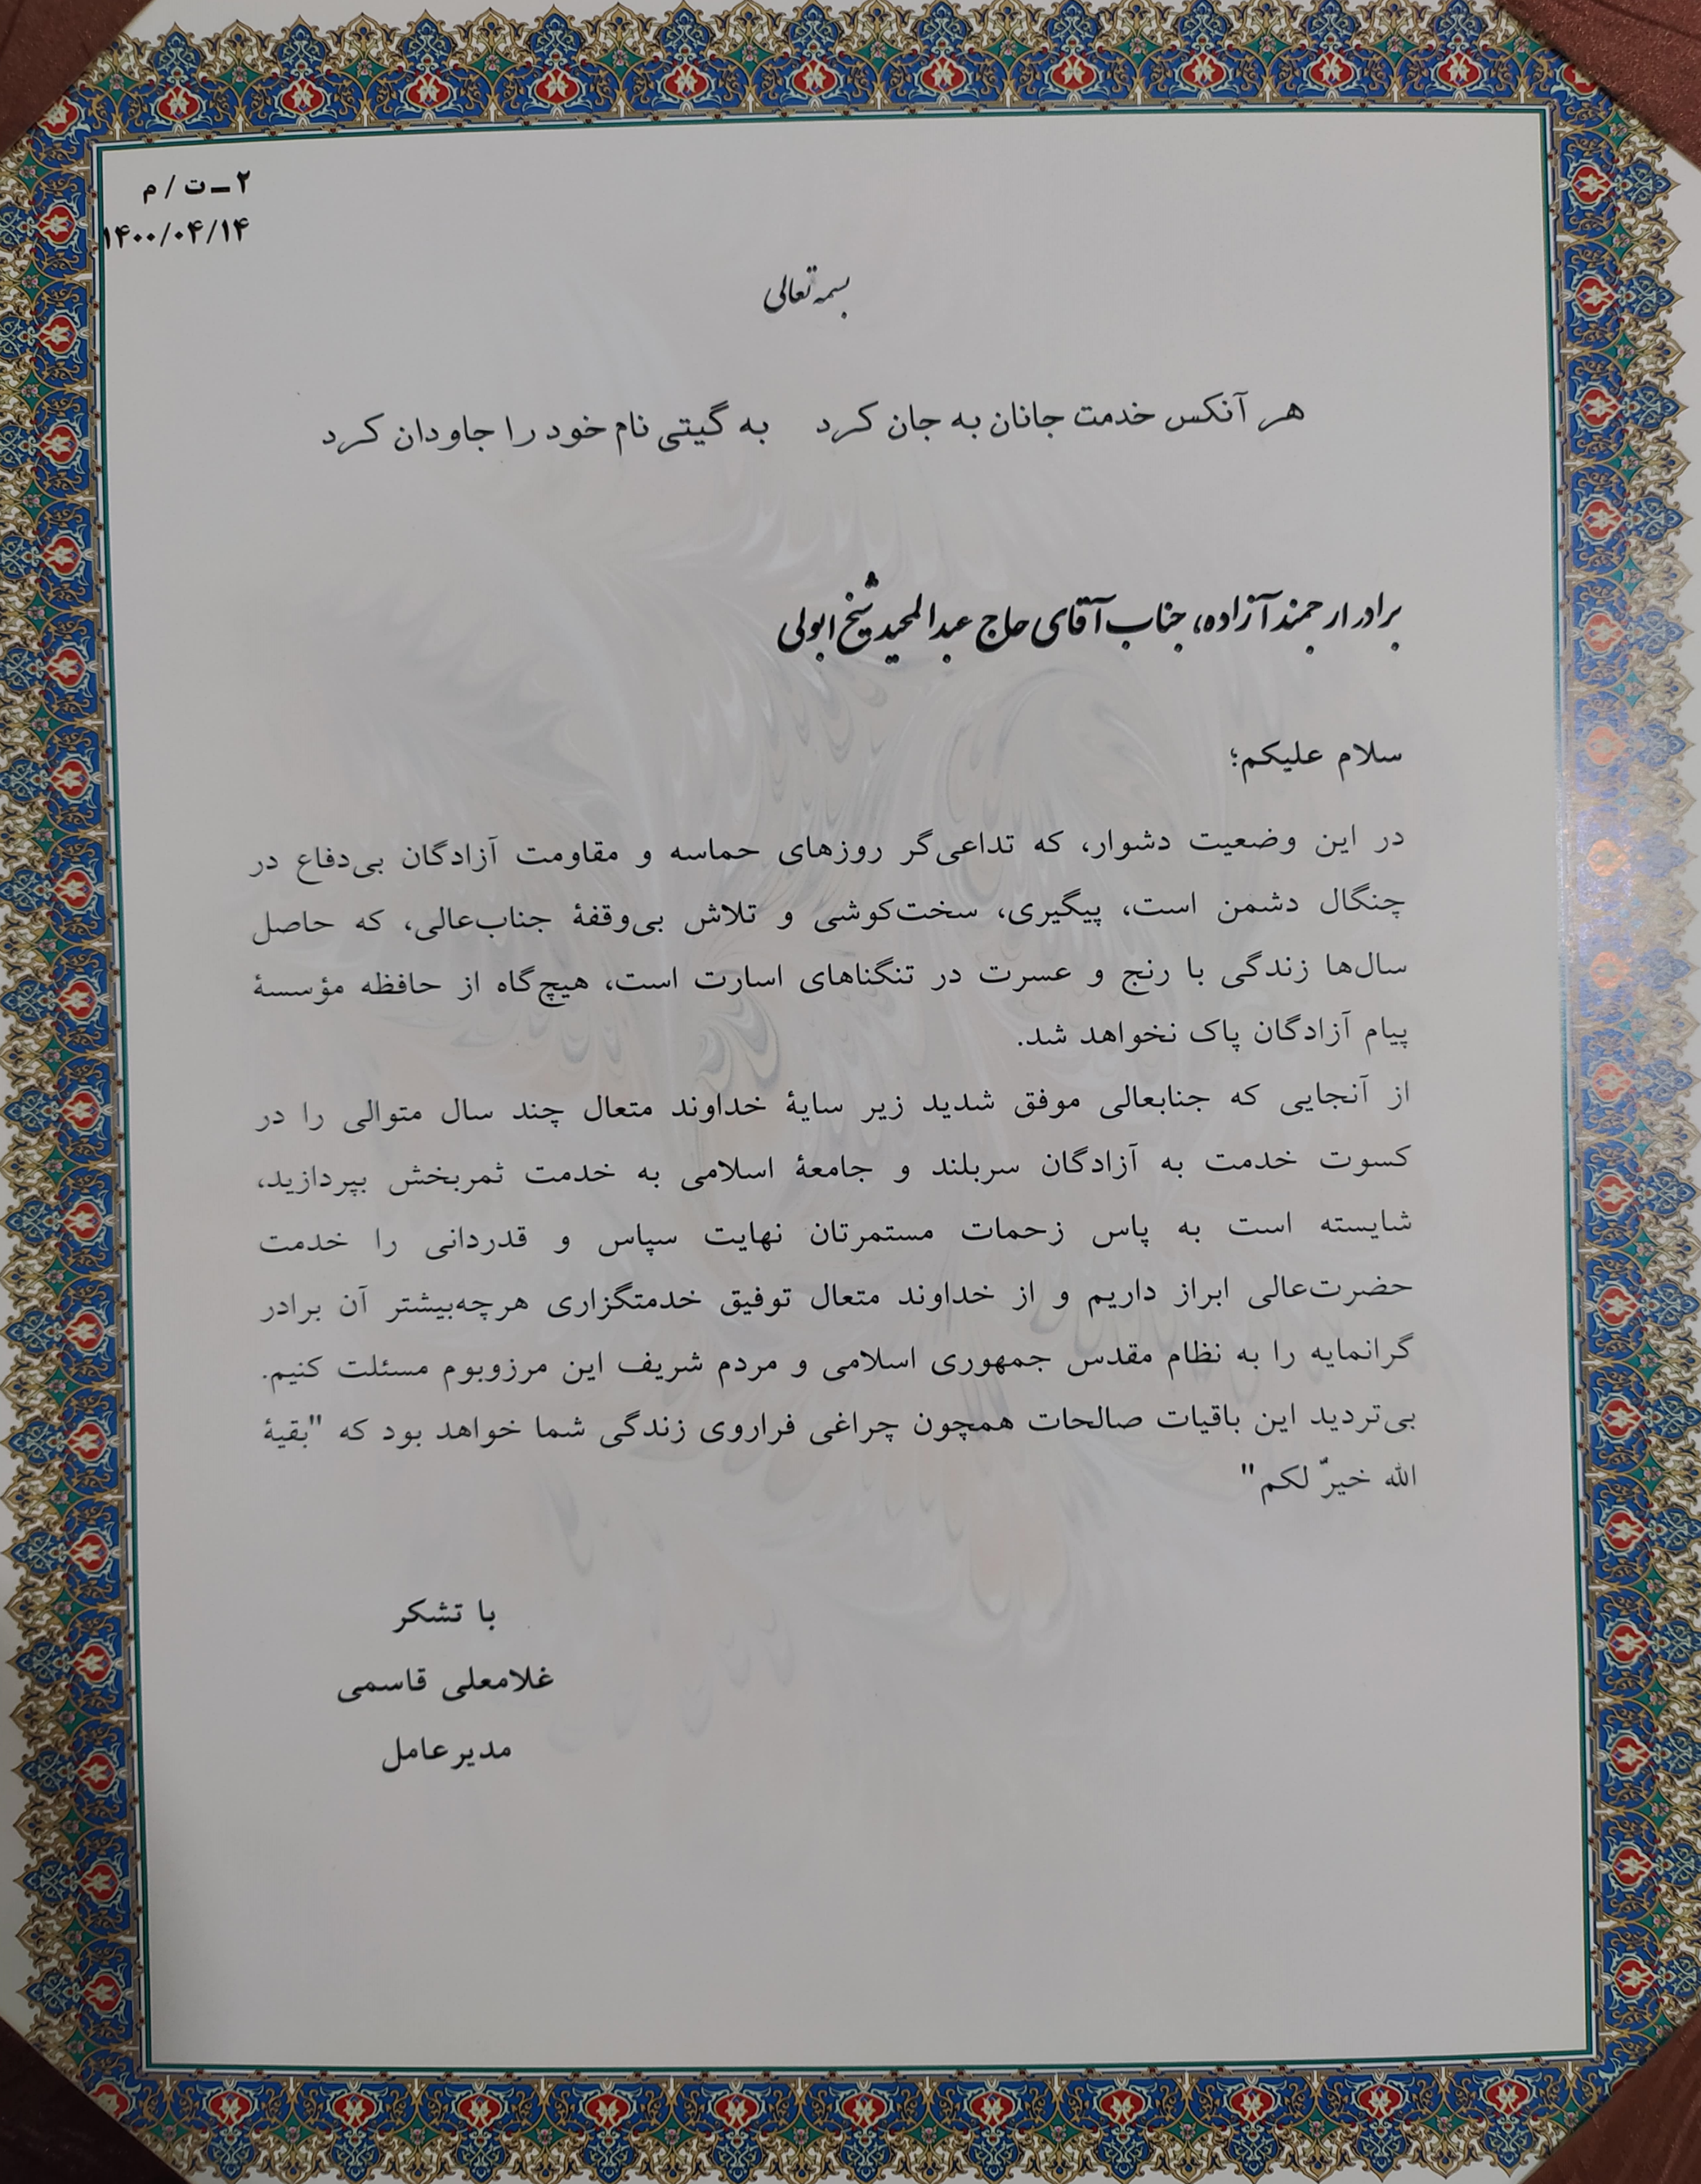 ۲ــ ت / م
۱۴۰۰/۰۴/۱۴
بسمه تعالی
هر آنکس خدمت جانان به جان کرد    به گیتی نام خود را جاودان کرد
برادر ارجمند آزاده، جناب آقای حاج عبدالمجید شیخ ابولی
سلام علیکم؛
در این وضعیت دشوار، که تداعی‌گر روزهای حماسه و مقاومت آزادگان بی‌دفاع در
چنگال دشمن است، پیگیری، سخت‌کوشی و تلاش بی‌وقفهٔ جناب‌عالی، که حاصل
سال‌ها زندگی با رنج و عسرت در تنگناهای اسارت است، هیچ‌گاه از حافظه مؤسسهٔ
پیام آزادگان پاک نخواهد شد.
از آنجایی که جنابعالی موفق شدید زیر سایهٔ خداوند متعال چند سال متوالی را در
کسوت خدمت به آزادگان سربلند و جامعهٔ اسلامی به خدمت ثمربخش بپردازید،
شایسته است به پاس زحمات مستمرتان نهایت سپاس و قدردانی را خدمت
حضرت‌عالی ابراز داریم و از خداوند متعال توفیق خدمتگزاری هرچه‌بیشتر آن برادر
گرانمایه را به نظام مقدس جمهوری اسلامی و مردم شریف این مرزوبوم مسئلت کنیم.
بی‌تردید این باقیات صالحات همچون چراغی فراروی زندگی شما خواهد بود که "بقیهٔ
الله خیرٌ لکم"
با تشکر
غلامعلی قاسمی
مدیرعامل